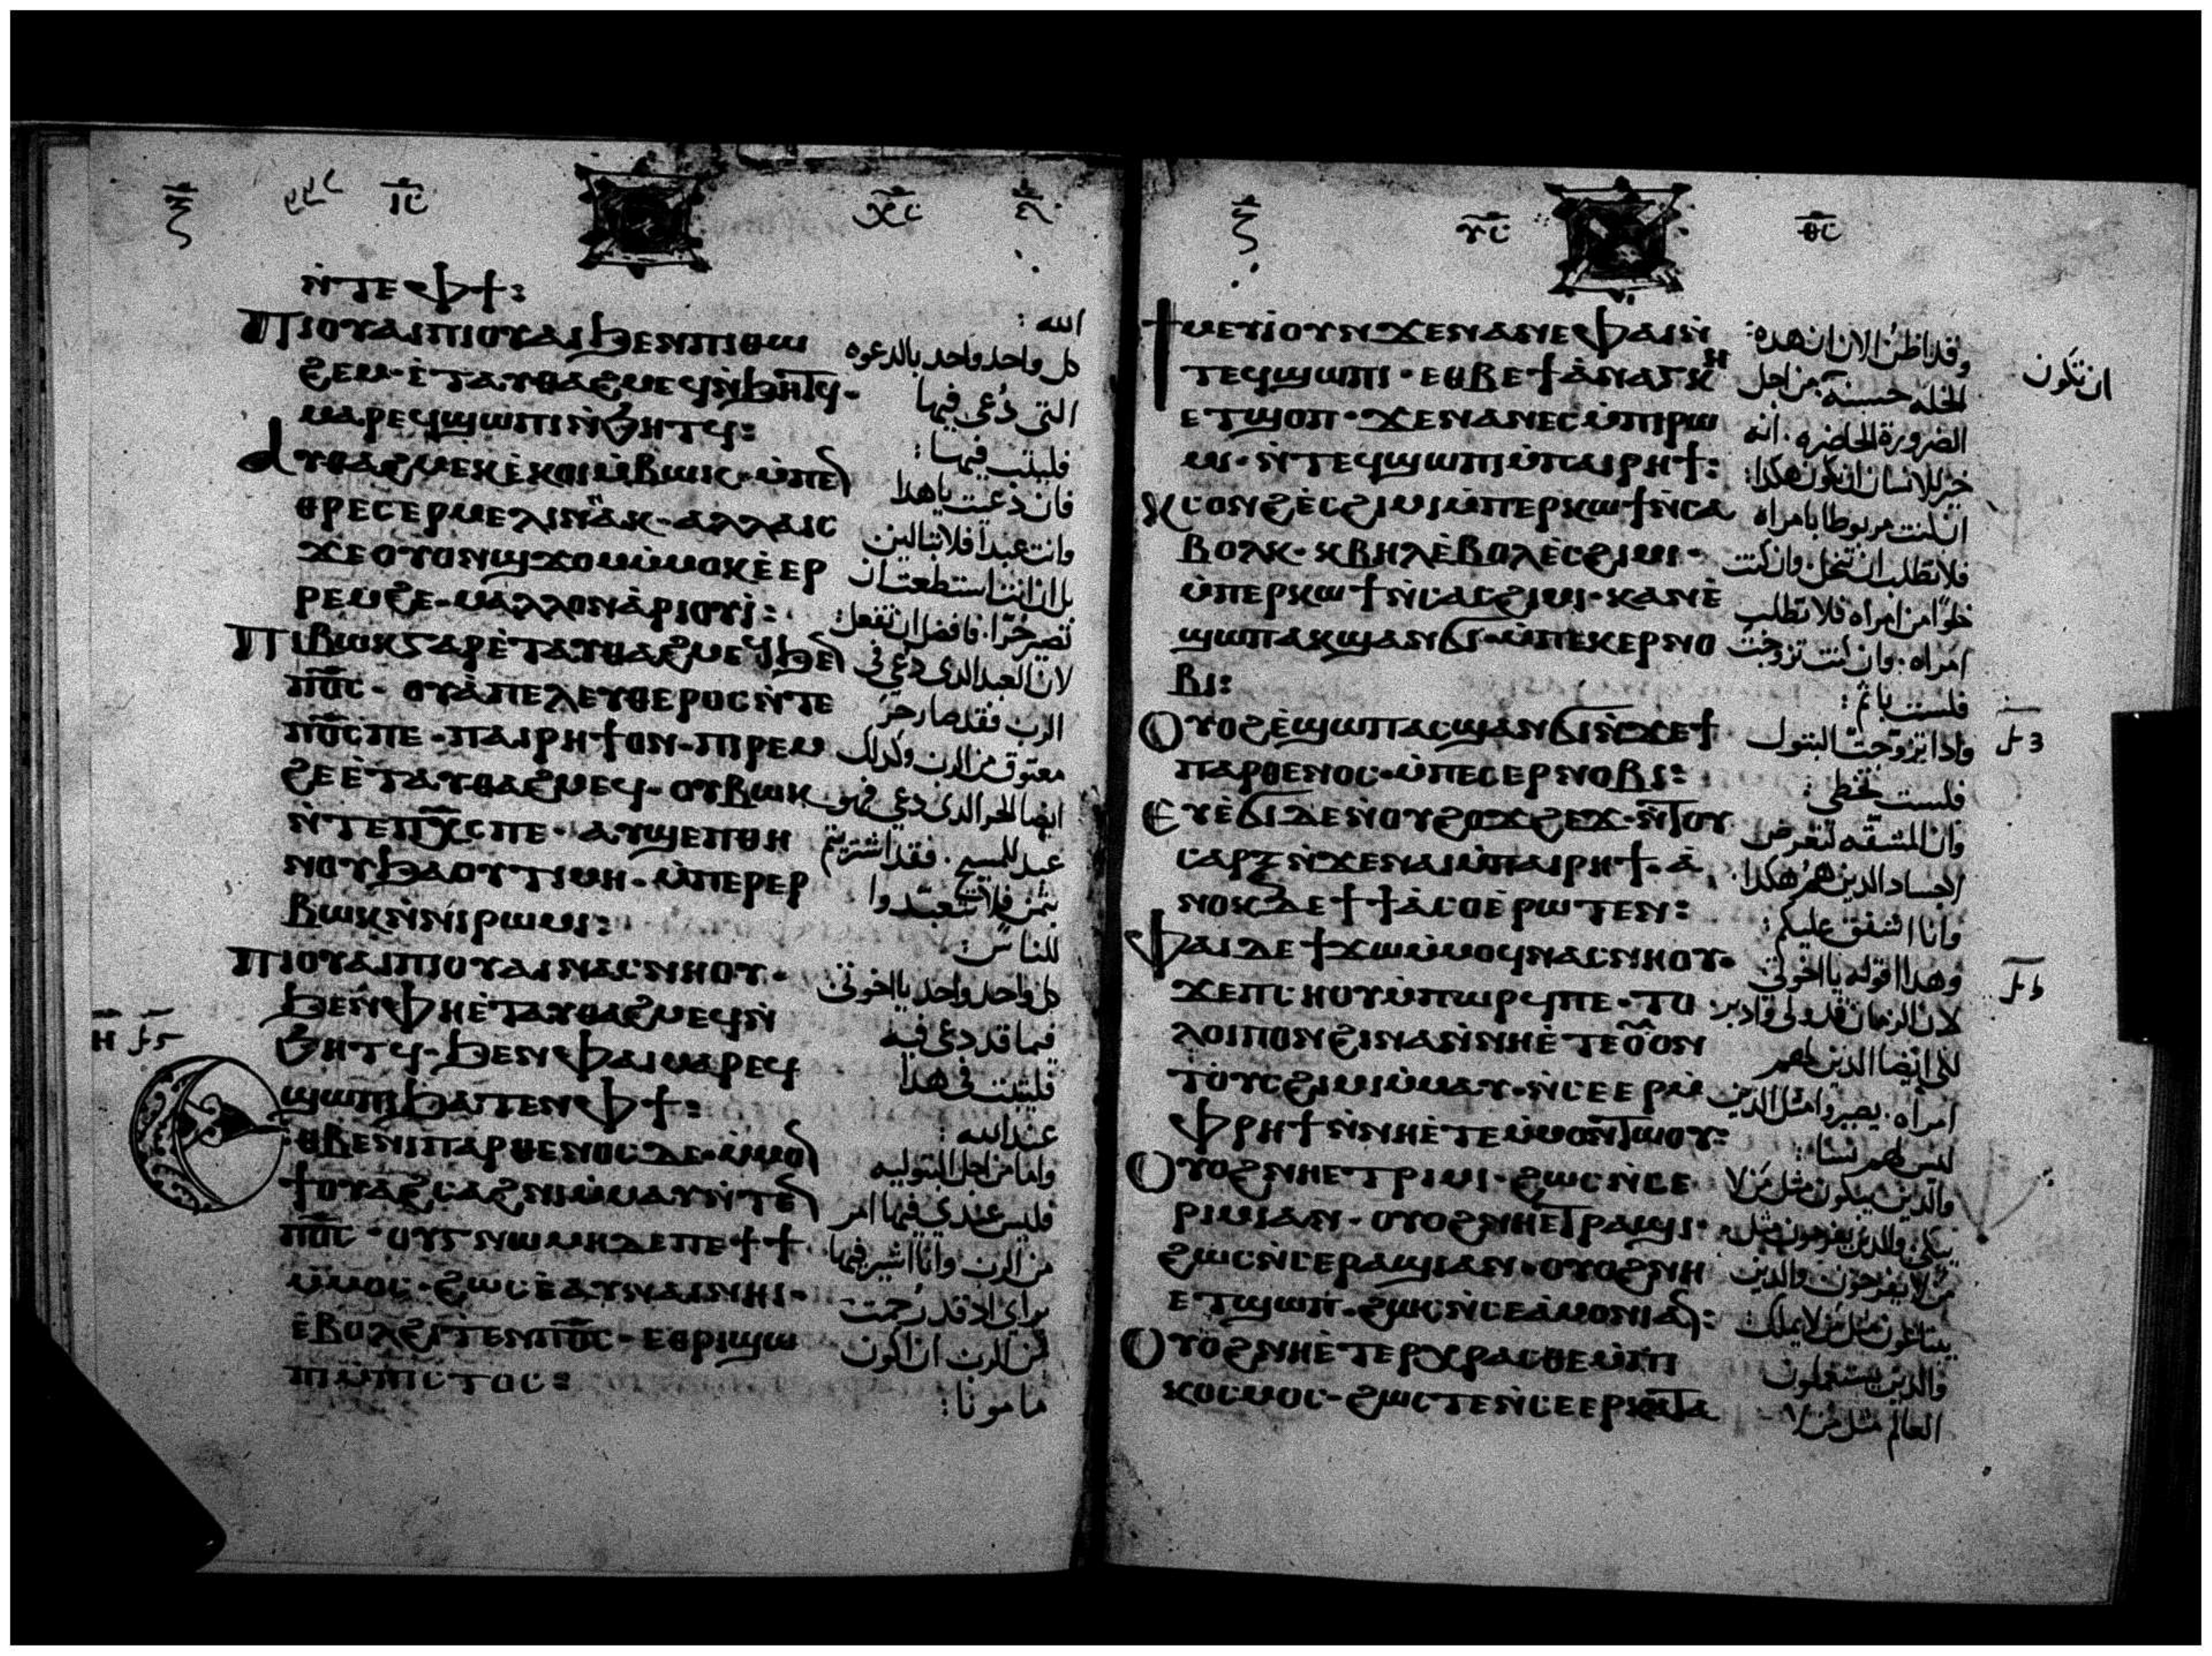 ⲓ̅ⲥ̅ ⲭ̅ⲥ̅
ⲛ̀ⲧⲉⲫϯ:
ⲡⲓⲟⲩⲁⲓⲡⲓⲟⲩⲁⲓϧⲉⲛⲡⲓⲑⲱ
ϩⲉⲙ·ⲉ̀ⲧⲁⲩⲑⲁϩⲙⲉϥⲛ̀ϧⲏⲧϥ·
ⲙⲁⲣⲉϥϣⲱⲡⲓⲛ̀ϧⲏⲧϥ:
ⲁⲩⲑⲁϩⲙⲉⲕⲉ̀ⲕⲟⲓⲙ̀ⲃⲱⲕ·ⲙ̀ⲡⲉⲛ
ⲑⲣⲉⲥⲉⲣⲙⲉⲗⲓⲛⲁⲕ·ⲁⲗⲗⲁⲓⲥ
ϫⲉⲟⲩⲟⲛϣϫⲟⲙⲙ̀ⲙⲟⲕⲉ̀ⲉⲣ
ⲣⲉⲙϩⲉ·ⲙⲁⲗⲗⲟⲛⲁ̀ⲣⲓⲟⲩⲓ̀:
ⲡⲓⲃⲱⲕⲅⲁⲣⲉ̀ⲧⲁⲩⲑⲁϩⲙⲉϥϧⲉⲛ
ⲡⲟ̅ⲥ̅·ⲟⲩⲁ̀ⲡⲉⲗⲉⲩⲑⲉⲣⲟⲥⲛ̀ⲧⲉ
ⲡⲟ̅ⲥ̅ⲡⲉ·ⲡⲁⲓⲣⲏϯⲟⲛ·ⲡⲓⲣⲉⲙ
ϩⲉⲉ̀ⲧⲁⲩⲑⲁϩⲙⲉϥ·ⲟⲩⲃⲱⲕ
ⲛ̀ⲧⲉⲡⲭ̅ⲥ̅ⲡⲉ·ⲁⲩϣⲉⲡⲑⲏ
ⲛⲟⲩϧⲁⲟⲩⲧⲓⲙⲏ·ⲙ̀ⲡⲉⲣⲉⲣ
ⲃⲱⲕⲛ̀ⲛⲓⲣⲱⲙⲓ:
ⲡⲓⲟⲩⲁⲓⲡⲓⲟⲩⲁⲓⲛⲁⲥⲛⲏⲟⲩ·
ϧⲉⲛⲫⲏⲉ̀ⲧⲁⲩⲑⲁϩⲙⲉϥⲛ̀
ϧⲏⲧϥ·ϧⲉⲛⲫⲁⲓⲙⲁⲣⲉϥ
ϣⲱⲡⲓϧⲁⲧⲉⲛⲫϯ:
ⲉⲑⲃⲉⲛⲓⲡⲁⲣⲑⲉⲛⲟⲥⲇⲉ·ⲙ̀ⲙⲟⲛ
ϯⲟⲩⲁϩⲥⲁϩⲛⲓⲙ̀ⲙⲁⲩⲛ̀ⲧⲉⲛ
ⲡⲟ̅ⲥ̅·ⲟⲩⲅⲛⲱⲙⲏⲇⲉⲡⲉϯϯ
ⲙ̀ⲙⲟⲥ·ϩⲱⲥⲉ̀ⲁⲩⲛⲁⲓⲛⲏⲓ·
ⲉ̀ⲃⲟⲗϩⲓⲧⲉⲛⲡⲟ̅ⲥ̅·ⲉⲑⲣⲓϣⲱ
ⲡⲓⲙ̀ⲡⲓⲥⲧⲟⲥ:
الله:
كل واحد واحد بالدعوه
التى دُعى فيها
فليلبث فيها:
فان دعيت ياهدا
وانت عبدا فلا تبالين
بل ان انت استطعت ان
تصير حُرّا. فافضل ان تفعل:
لان العبد الدى دُعى فى
الرب فقد صار حرّ
معتوق من الرب وكدلك
ايضا الحر الدى دعي فهو
عبد للمسيح. فقد اشتريتم
بثمن فلا تتعبّدوا
للناس:
كل واحد واحد يا اخوتى
فيما قد دعى فيه
فليثبت فى هدا
عند الله:
واما من اجل البتوليه
فليس عندي فيها امر
من الرب وانا اشير فيها
براى اد قد رُحمت
من الرب ان اكون
مامونا:
ⲩ̅ⲥ̅ ⲑ̅ⲥ̅
ϯⲙⲉⲩⲓ̀ⲟⲩⲛϫⲉⲛⲁⲛⲉⲫⲁⲓⲛ̀
ⲧⲉϥϣⲱⲡⲓ·ⲉⲑⲃⲉϯⲁ̀ⲛⲁⲅⲕⲏ
ⲉⲧϣⲟⲡ·ϫⲉⲛⲁⲛⲉⲥⲙ̀ⲡⲓⲣⲱ
ⲙⲓ·ⲛ̀ⲧⲉϥϣⲱⲡⲓⲙ̀ⲡⲁⲓⲣⲏϯ:
ⲕⲥⲟⲛϩⲉ̀ⲥϩⲓⲙⲓⲙ̀ⲡⲉⲣⲕⲱϯⲛ̀ⲥⲁ
ⲃⲟⲗⲕ·ⲕⲃⲏⲗⲉ̀ⲃⲟⲗⲉ̀ⲥϩⲓⲙⲓ·
ⲙ̀ⲡⲉⲣⲕⲱϯⲛ̀ⲥⲁⲥϩⲓⲙⲓ·ⲕⲁⲛⲉ̀
ϣⲱⲡⲁⲕϣⲁⲛϭⲓ·ⲙ̀ⲡⲉⲕⲉⲣⲛⲟ
ⲃⲓ:
ⲟⲩⲟϩⲉ̀ϣⲱⲡⲁⲥϣⲁⲛϭⲓⲛ̀ϫⲉϯ
ⲡⲁⲣⲑⲉⲛⲟⲥ·ⲙ̀ⲡⲉⲥⲉⲣⲛⲟⲃⲓ:
ⲉⲩⲉ̀ϭⲓⲇⲉⲛⲟⲩϩⲟϫϩⲉϫ·ⲛ̀ⲧⲟⲩ
ⲥⲁⲣⲝⲛ̀ϫⲉⲛⲁⲓⲙ̀ⲡⲁⲓⲣⲏϯ·ⲁ̀
ⲛⲟⲕⲇⲉϯϯⲁ̀ⲥⲟⲉ̀ⲣⲱⲧⲉⲛ:
ⲫⲁⲓⲇⲉϯϫⲱⲙ̀ⲙⲟϥⲛⲁⲥⲛⲏⲟⲩ·
ϫⲉⲡⲓⲥⲏⲟⲩⲙ̀ⲡⲱⲣϥⲡⲉ·ⲧⲟ
ⲗⲟⲓⲡⲟⲛϩⲓⲛⲁⲛ̀ⲛⲏⲉ̀ⲧⲉⲟⲩⲟⲛ
ⲧⲟⲩⲥϩⲓⲙⲓⲙ̀ⲙⲁⲩ·ⲛ̀ⲥⲉⲉⲣⲙ̀
ⲫⲣⲏϯⲛ̀ⲛⲏⲉ̀ⲧⲉⲙ̀ⲙⲟⲛⲧⲱⲟⲩ:
ⲟⲩⲟϩⲛⲏⲉⲧⲣⲓⲙⲓ·ϩⲱⲥⲛ̀ⲥⲉ
ⲣⲓⲙⲓⲁⲛ·ⲟⲩⲟϩⲛⲏⲉⲧⲣⲁϣⲓ·
ϩⲱⲥⲛ̀ⲥⲉⲣⲁϣⲓⲁⲛ·ⲟⲩⲟϩⲛⲏ
ⲉⲧϣⲱⲡ·ϩⲱⲥⲛ̀ⲥⲉⲁ̀ⲙⲟⲛⲓⲁⲛ:
ⲟⲩⲟϩⲛⲏⲉ̀ⲧⲉⲣⲭⲣⲁⲥⲑⲉⲙ̀ⲡⲓ
ⲕⲟⲥⲙⲟⲥ·ϩⲱⲥⲧⲉⲛ̀ⲥⲉⲉⲣⲕⲁⲧⲁ
وقد اظن الان ان هده:
الخله حسنه من اجل
ان تكون
الضرورة الحاضره. انه
خير للانسان ان يكون هكدا:
ان كنت مربوطا بامراه
فلا تطلب ان تنحل. وان كنت
خلوًا من امراه فلا تطلب
امراه. وان كنت تزوجت
فلست باثم:
وادا تزوجت البتول
فلست تخطى:
وان المشقه تعرض
اجساد الدين هُم هكدا.
وانا اشفق عليكم:
وهدا اقوله يا اخوتى
لان الزمان قد ولى وادبر:
لكى ايضا الدين لهم
امراه. يصيروا مثل الدين
ليس لهم نسا:
والدين يبكون مثل من لا
يبكى. والدين يفرحون مثل
من لا يفرحون. والدين
يبتاعون مثل من لا يملك:
والدين يستعملون
العالم مثل من لا